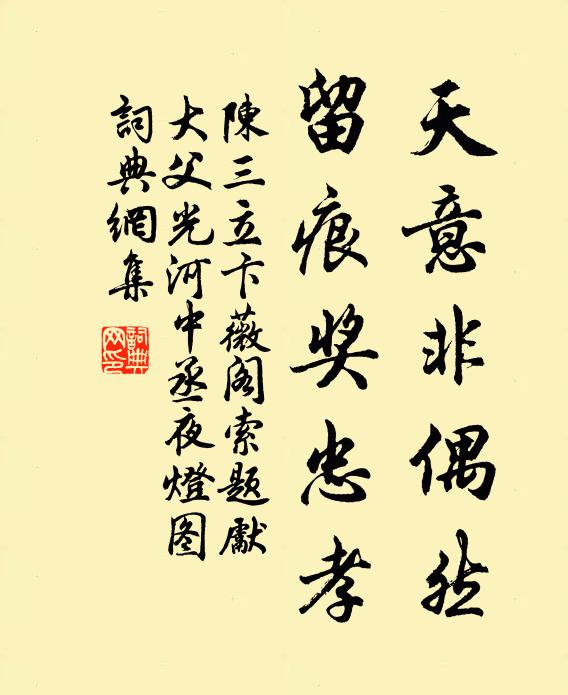 天意非偶然
留痕奖忠孝
陳三立卞薇閣索题獻
大父光河中丞夜燈图
詞典網集
詞典网印